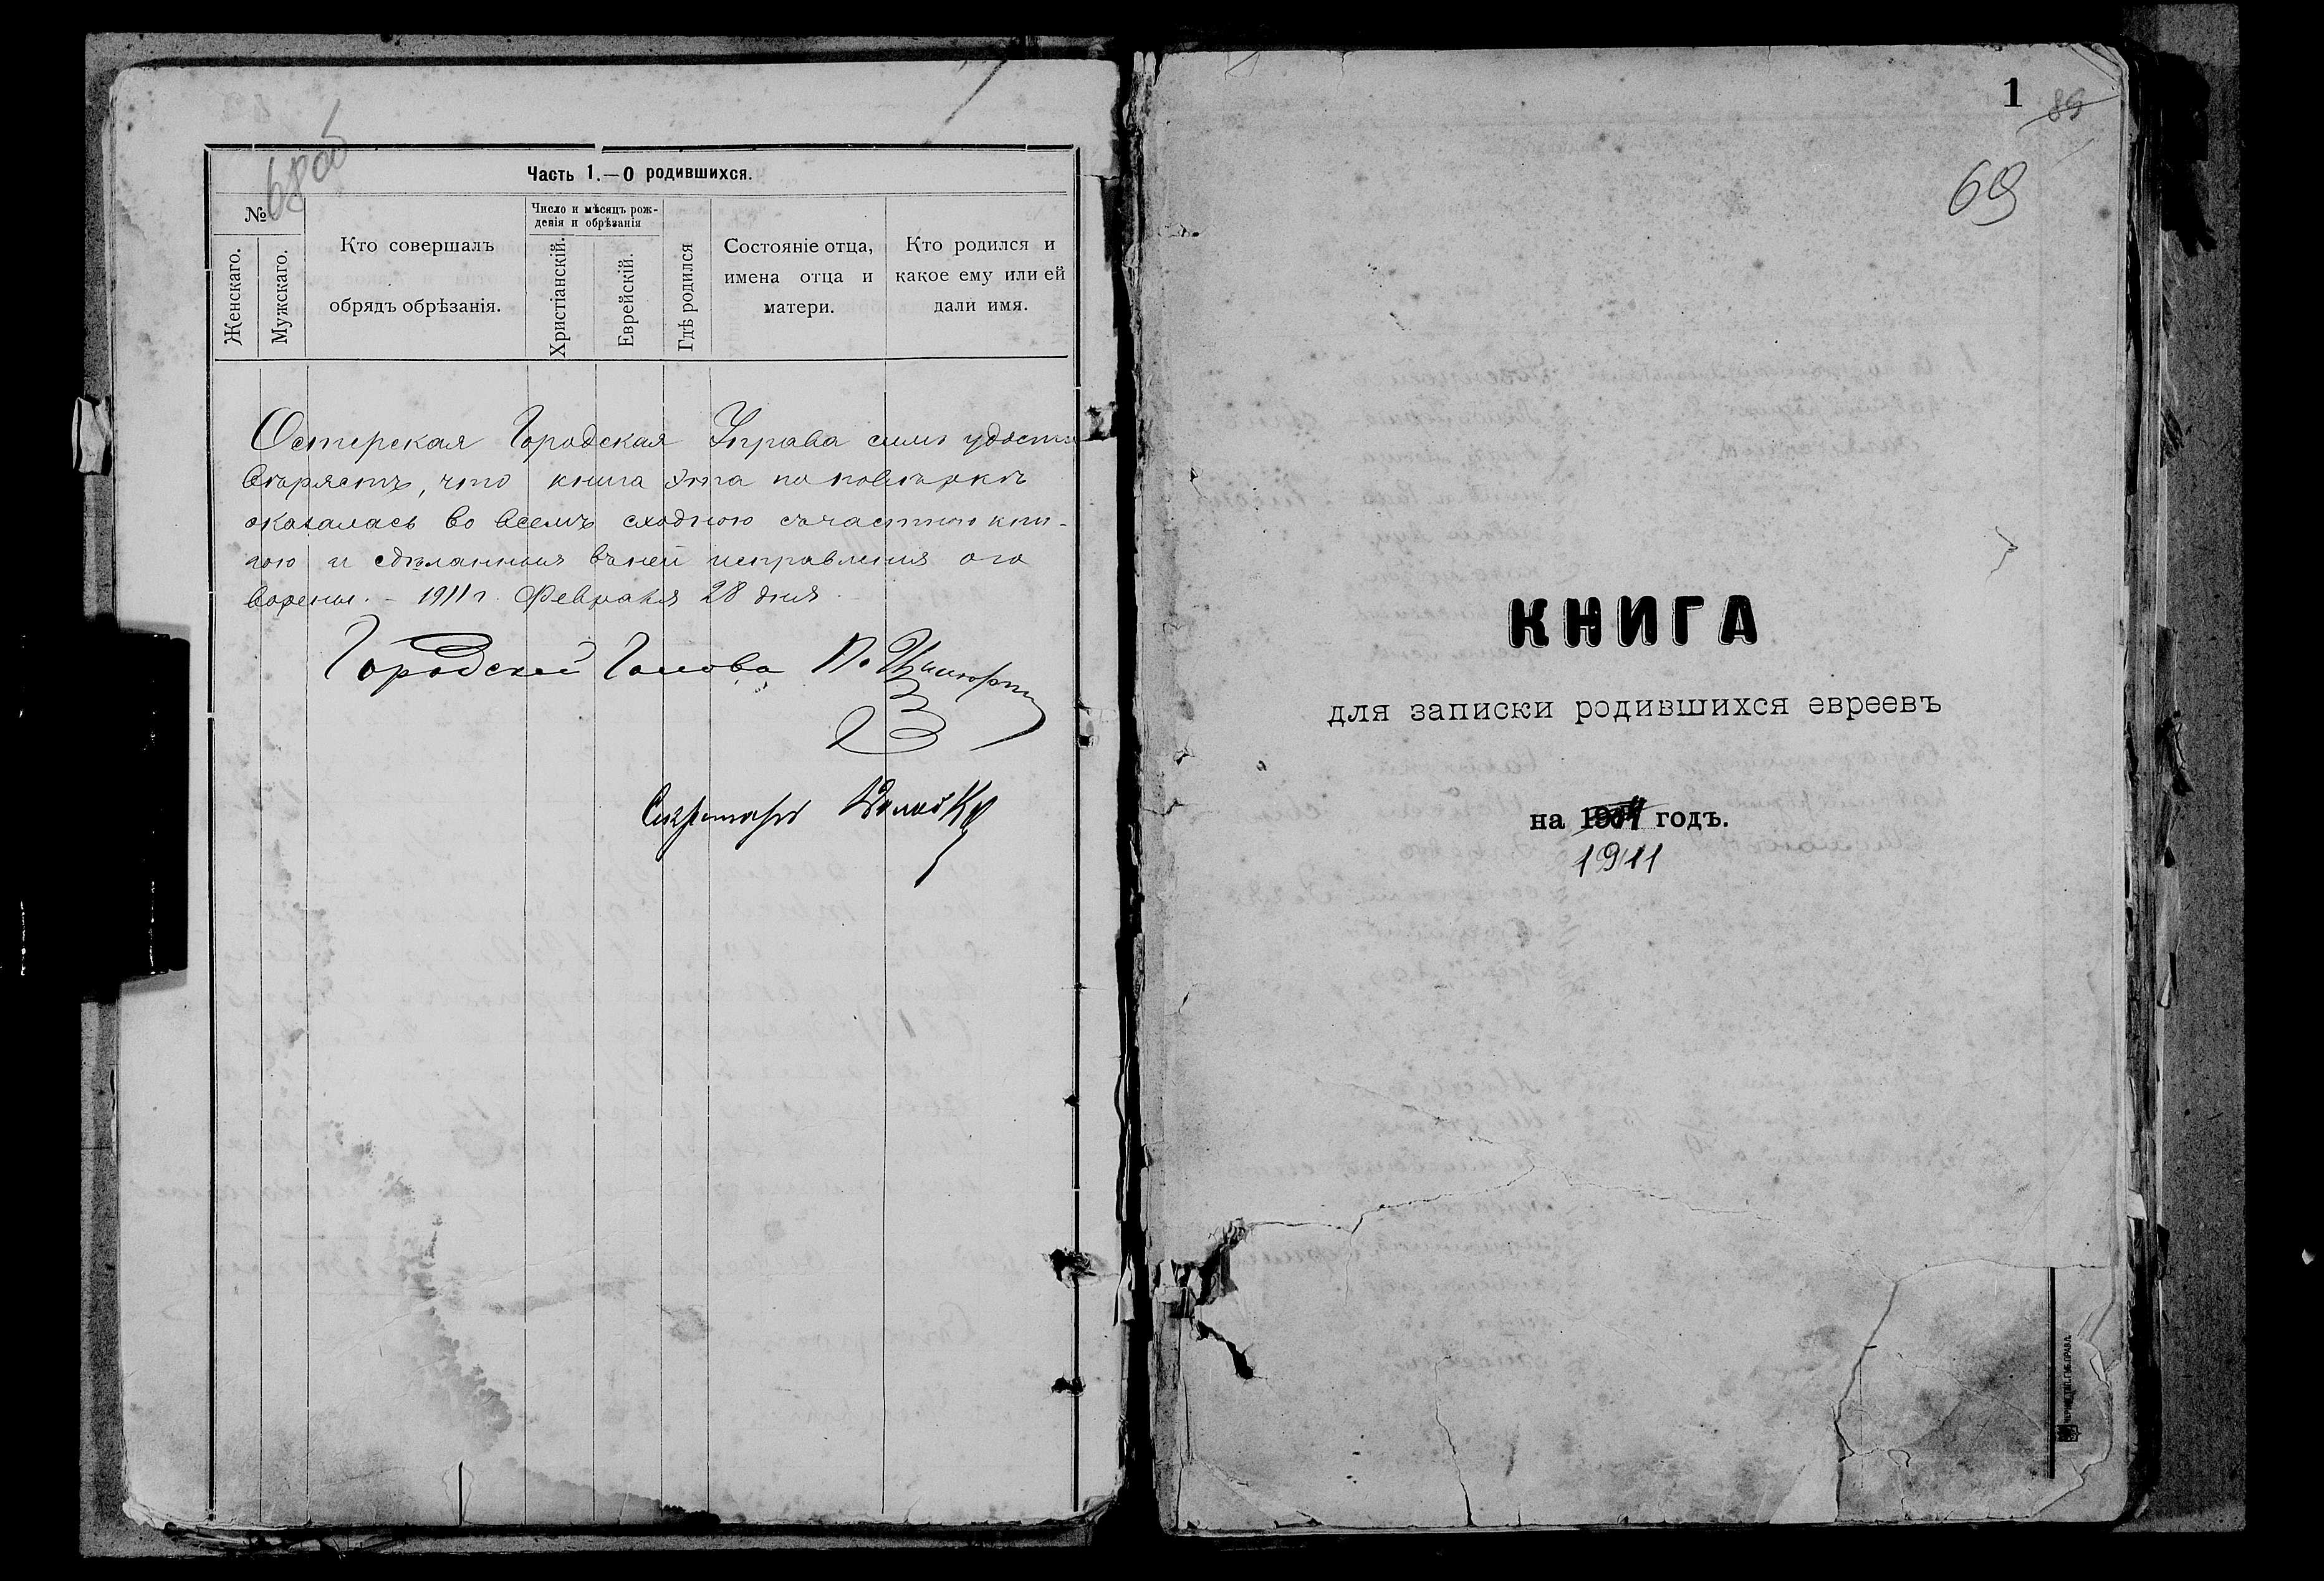 68 об
Часть 1.—О родившихся.
№
Женскаго.
Мужскаго.
Кто совершалъ
обрядъ обрѣзанія.
Число и мѣсяцъ рож-
денія и обрѣзанія
Христіанскій.
Еврейскій.
Гдѣ родился
Состояніе отца,
имена отца и
матери.
Кто родился и
какое ему или ей
дали имя.
Остерская Городская Управа симъ удосто
вѣряетъ, что книга эта по повѣркѣ
оказалась во всемъ сходною съ частною кни-
гою и сдѣланныя въ ней исправленія ого
ворены. – 1911 г. Февраля 28 дня.
Городской Голова П.
Секретарь
1
89
69
КНИГА
для записки родившихся евреевъ
на 190 годъ.
1911